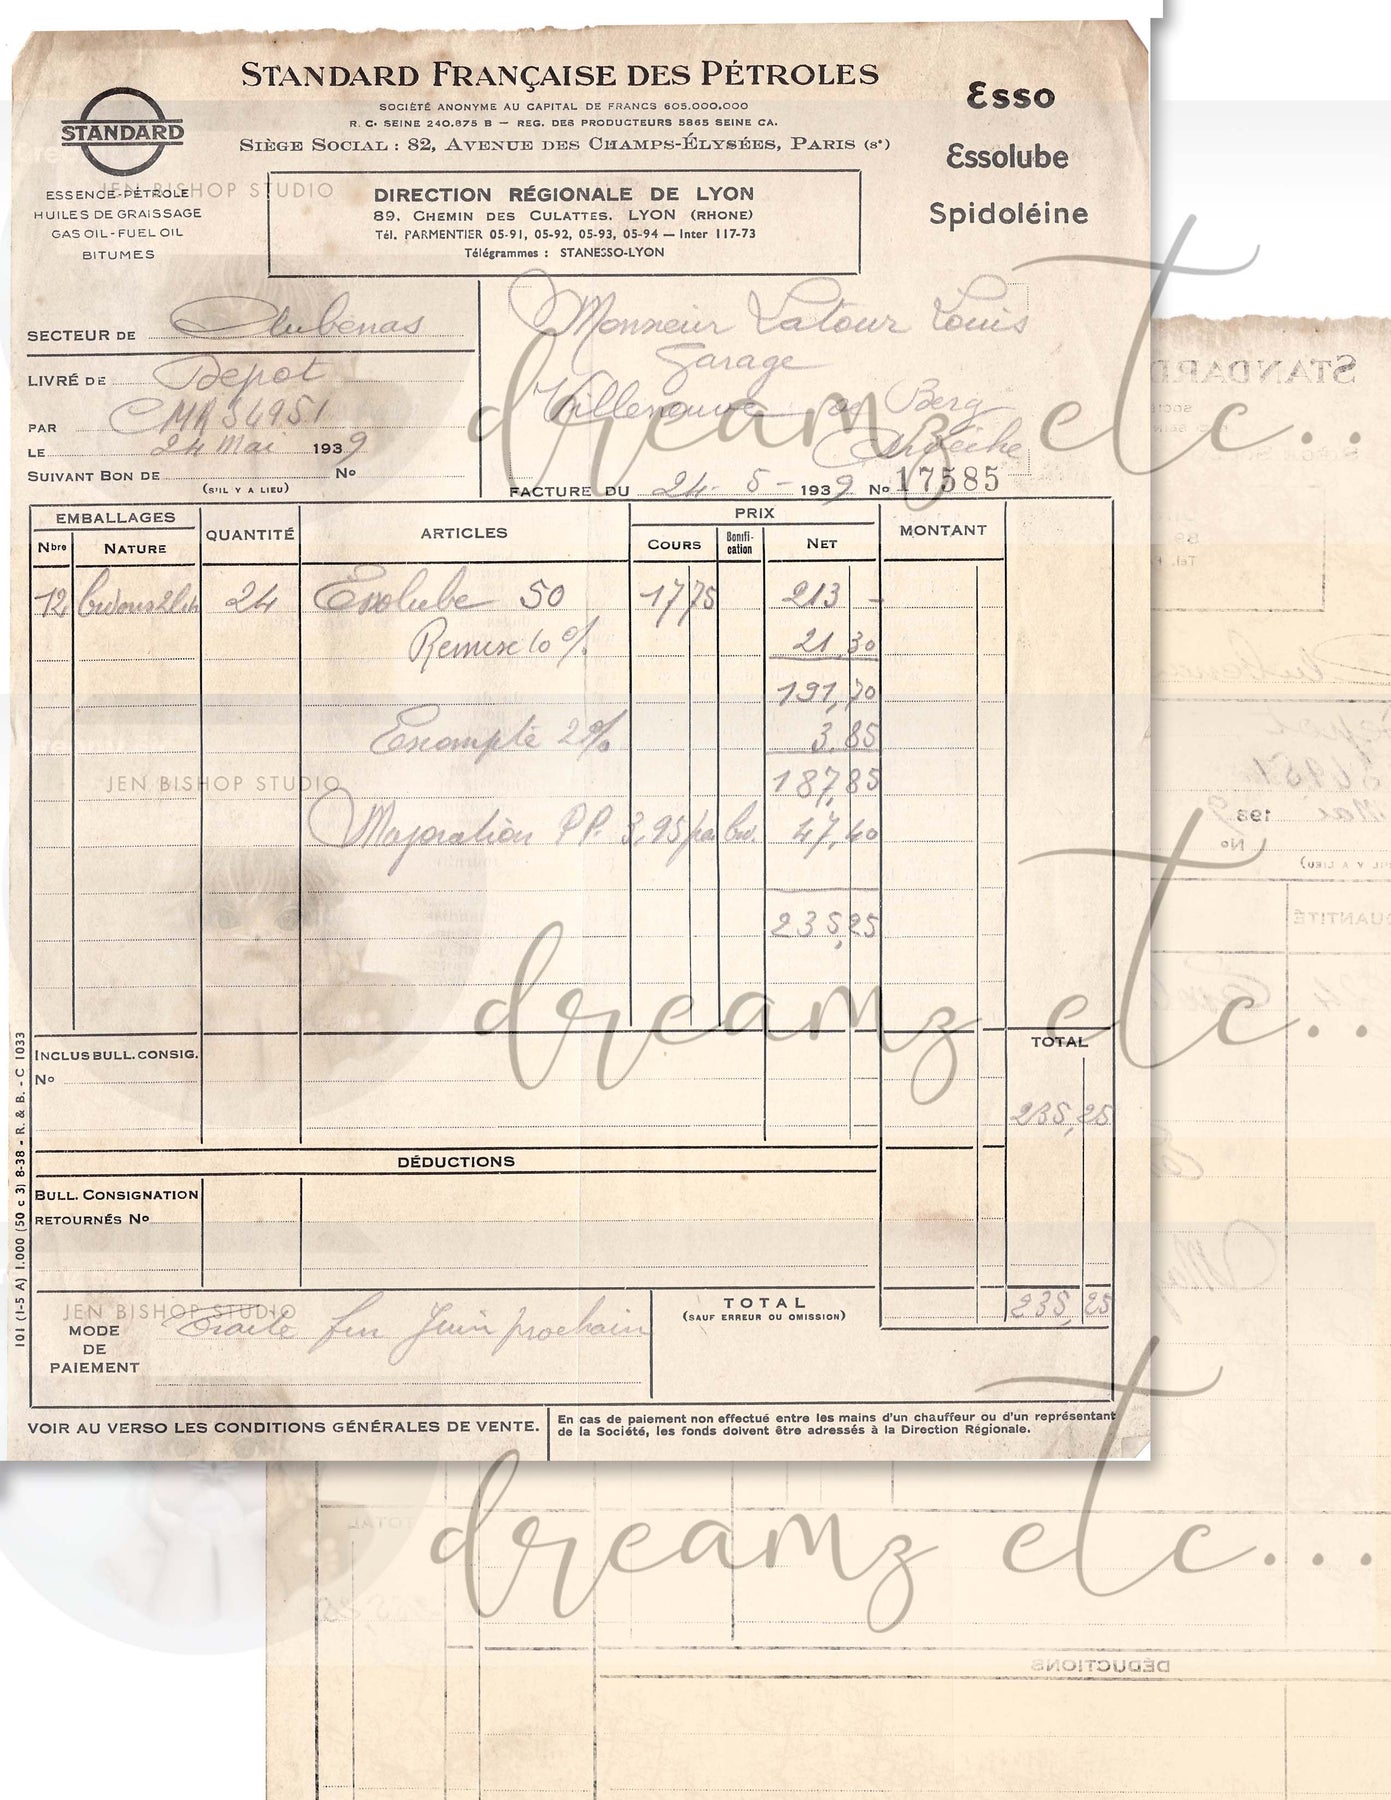 STANDARD FRANÇAISE DES PÉTROLES
SOCIÉTÉ ANONYME AU CAPITAL DE FRANCS 605.000.000
R. C. SEINE 240.875 B — REG. DES PRODUCTEURS 5865 SEINE CA.
SIÈGE SOCIAL : 82, AVENUE DES CHAMPS-ÉLYSÉES, PARIS (8e)
STANDARD
ESSENCE-PÉTROLE
HUILES DE GRAISSAGE
GAS OIL-FUEL OIL
BITUMES
JEN BISHOP STUDIO
DIRECTION RÉGIONALE DE LYON
89, CHEMIN DES CULATTES. LYON (RHONE)
Tél. PARMENTIER 05-91, 05-92, 05-93, 05-94 — Inter 117-73
Télégrammes : STANESSO-LYON
Esso
Essolube
Spidoléine
SECTEUR DE Aubenas
LIVRÉ DE Depot
PAR CMR 54951
LE 24 Mai 1939
SUIVANT BON DE No
(S'IL Y A LIEU)
Monsieur Latour Louis
Garage
Villeneuve de Berg
Ardèche
FACTURE DU 24-5-1939 No 17585
dreamz etc...
EMBALLAGES QUANTITÉ ARTICLES PRIX MONTANT
Nbre NATURE COURS Bonifi-cation NET
12 24 Essolube 50 17 75 213 -
Remise 10 % 21 30
191,70
Escompte 2 % 3,85
187,85
JEN BISHOP STUDIO
Majoration PP. 3,95 par bid. 47,40
235,25
dreamz etc...
INCLUS BULL. CONSIG. TOTAL
No
235,25
DÉDUCTIONS
BULL. CONSIGNATION
RETOURNÉS No
TOTAL 235,25
(SAUF ERREUR OU OMISSION)
JEN BISHOP STUDIO
MODE
DE
PAIEMENT
Traite fin Juin prochain
101 (1-5 A) 1.000 (50 c 3) 8-38 - R. & B. - C 1033
VOIR AU VERSO LES CONDITIONS GÉNÉRALES DE VENTE.
En cas de paiement non effectué entre les mains d'un chauffeur ou d'un représentant
de la Société, les fonds doivent être adressés à la Direction Régionale.
dreamz etc...
TOTAL
DÉDUCTIONS